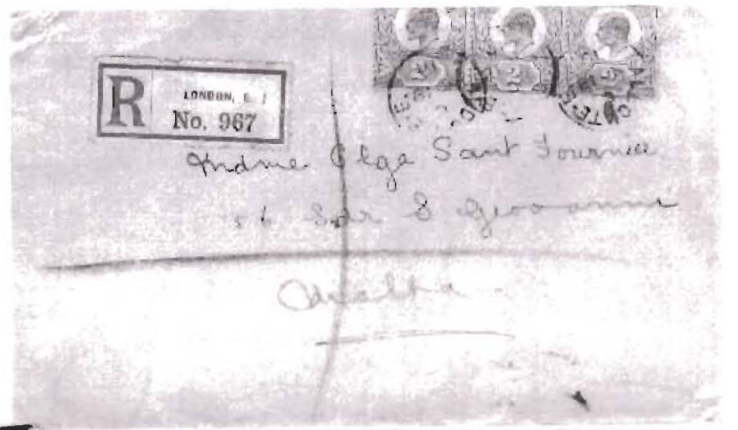 R
LONDON, E.
No. 967
2
Mdme Olga Sant Fournier
56 Sda S Giovanni
Malta